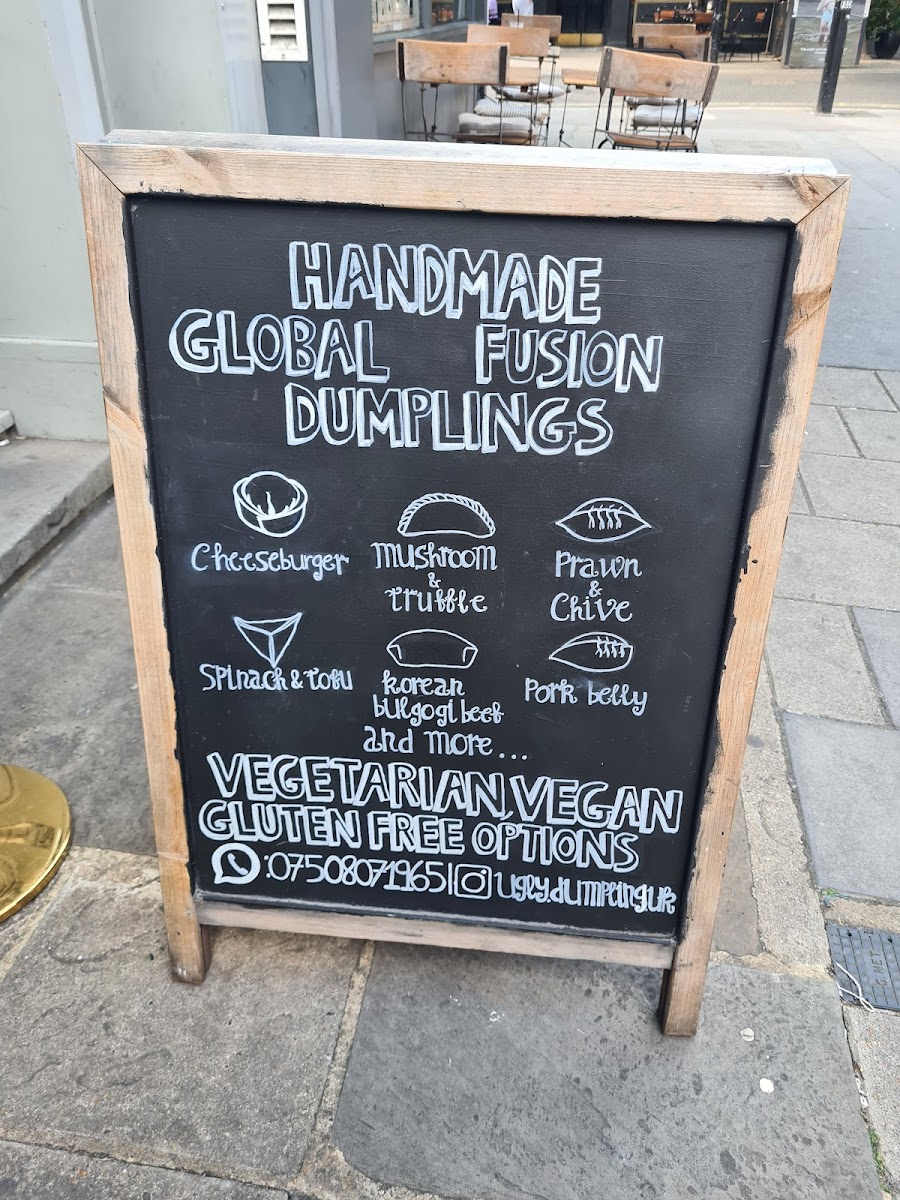 HANDMADE
GLOBAL FUSION
DUMPLINGS
Cheeseburger
Mushroom
&
truffle
Prawn
&
Chive
Spinach & tofu
korean
bulgogi beef
Pork belly
and more...
VEGETARIAN, VEGAN
GLUTEN FREE OPTIONS
:07508071965 | ugly.dumplinguk